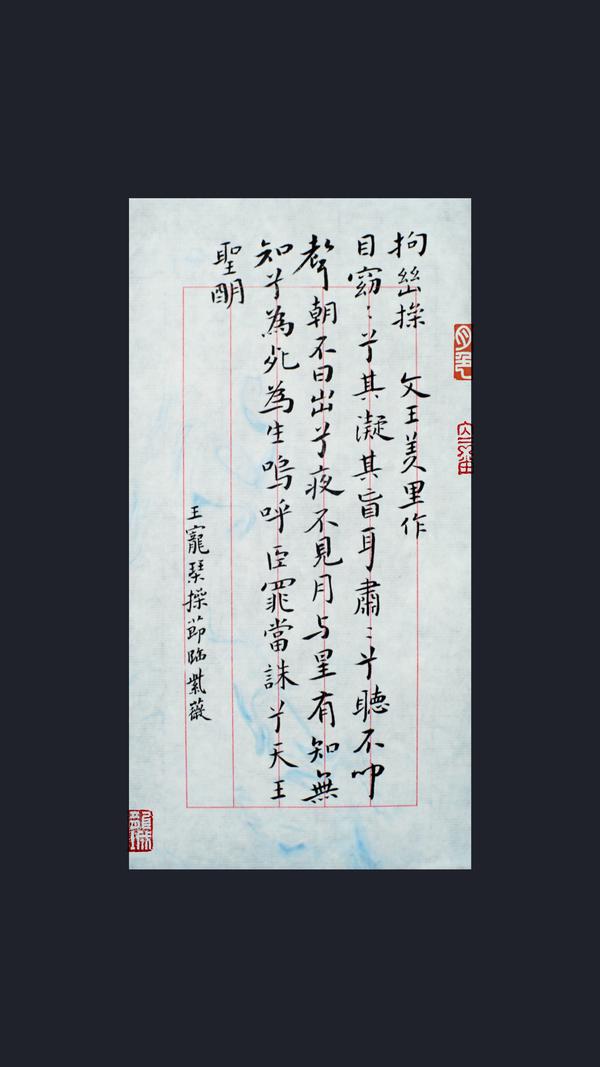 拘幽操 文王羑里作
目窈〻兮其凝其盲耳肅〻兮聽不聞
聲朝不日出兮夜不見月与星有知無
知兮為死為生嗚呼臣罪當誅兮天王
聖明
王寵琴操節臨紫薇